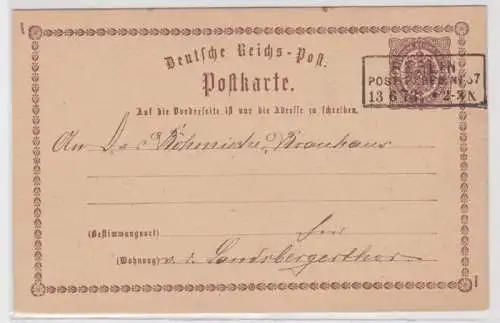 Deutsche Reichs-Post.
Postkarte.
BERLIN
POST
13 6 73 * 2-3N
Auf die Vorderseite ist nur die Adresse zu schreiben.
An Böhmische Brauhaus
(Bestimmungsort) hier
(Wohnung) v. d. Landsbergerthor